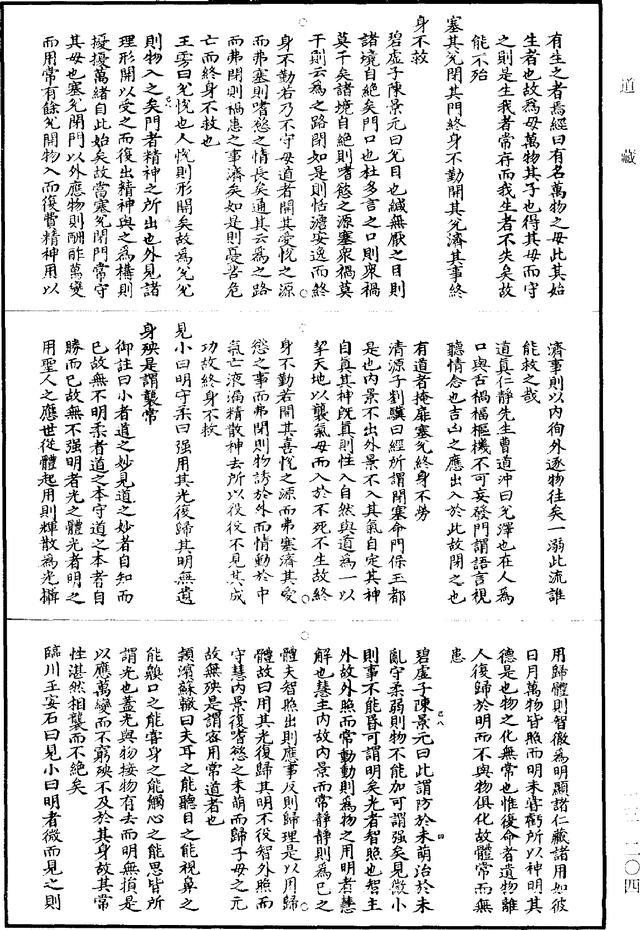 道藏
有生之者焉經曰有名萬物之母此其始
生者也故為母萬物其子也得其母而守
之則是生我者常存而我生者不失矣故
能不殆
塞其兌閉其門終身不勤開其兌濟其事終
身不救
碧虛子陳景元曰兌目也緘無厭之目則
諸境自絶矣門口也杜多言之口則衆禍
莫干矣諸境自絶則嗜慾之源塞衆禍莫
干則云為之路閉如是則恬澹安逸而終
身不勤若乃不守母道者開其愛悅之源
而弗塞則嗜慾之情長矣通其云為之路
而弗閉則禍患之事濟矣如是則憂苦危
亡而終身不救也
王雱曰兌悅也人悅則形開矣故為兌兌
則物入之矣門者精神之所出也外見諸
理形開以受之而復出精神與之為構則
擾擾萬緒自此始矣故當塞兌閉門常守
其母也塞兌閉門以外應物則酬酢萬變
而用常有餘兌開物入而復費精神用以
濟事則以内徇外逐物往矣一溺此流誰
能救之哉
道真仁静先生曹道沖曰兌澤也在人為
口與舌禍福樞機不可妄發門謂語言視
聽情念也吉凶之應出入於此故閉之也
有道者掩扉塞兌終身不勞
清源子劉驥曰經所謂閉塞命門保玉都
是也内景不出外景不入其氣自定其神
自真其神旣真則性入自然與道為一以
挈天地以襲氣母而入於不死不生故終
身不勤若開其喜悅之源而弗塞濟其愛
慾之事而弗閉則物誘於外而情動於中
氣亡液漏精散神去所以役役不見其成
功故終身不救
見小曰明守柔曰强用其光復歸其明無遺
身殃是謂襲常
御註曰小者道之妙見道之妙者自知而
已故無不明柔者道之本守道之本者自
勝而已故無不强明者光之體光者明之
用聖人之應世從體起用則輝散為光攝
用歸體則智徹為明顯諸仁藏諸用如彼
日月萬物皆照而明未嘗虧所以神明其
德是也物之化無常也惟復命者遺物離
人復歸於明而不與物俱化故體常而無
患
碧虛子陳景元曰此謂防於未萌治於未
亂守柔弱則物不能加可謂强矣見微小
則事不能昏可謂明矣光者智照也智主
外故外照而常動動則為物之用明者慧
解也慧主内故内景而常静静則為已之
體夫智照出則應事反則歸理是以用歸
體故曰用其光復歸其明不役智外照而
守慧内景復嗜慾之未萌而歸子母之元
故無殃是謂密用常道者也
潁濱蘇轍曰夫耳之能聽目之能視鼻之
能齅口之能嘗身之能觸心之能思皆所
謂光也蓋光與物接物有去而明無損是
以應萬變而不窮殃不及於其身故其常
性湛然相襲而不絶矣
臨川王安石曰見小曰明者微而見之則